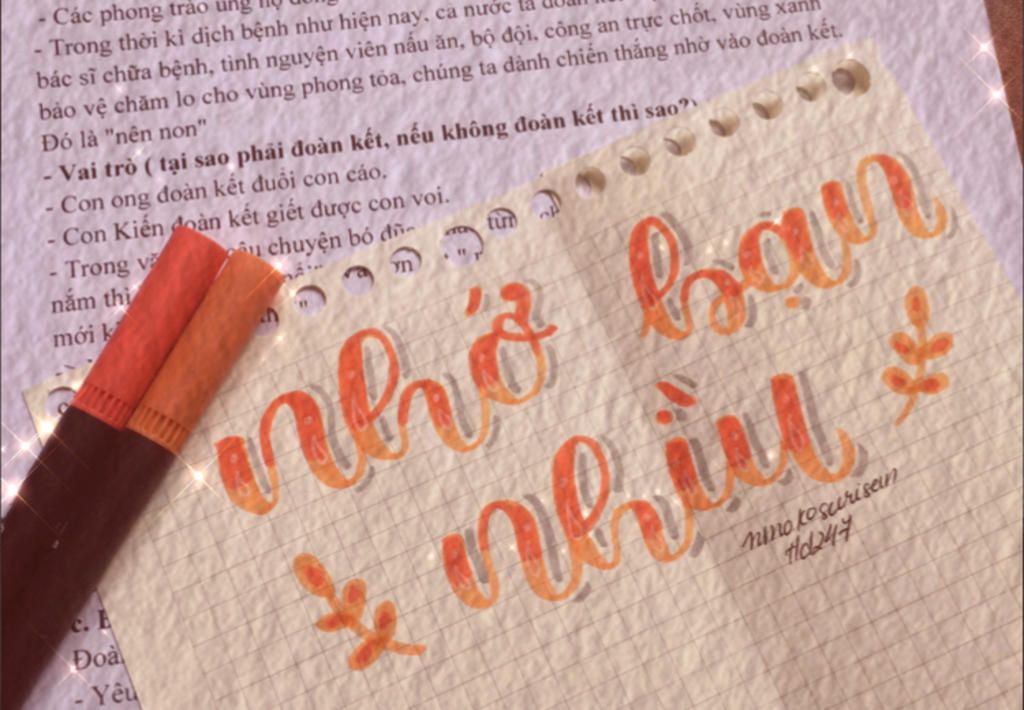 - Các phong trào ủng hộ
- Trong thời kì dịch bệnh như hiện nay, cả nước ta đoàn
bác sĩ chữa bệnh, tình nguyện viên nấu ăn, bộ đội, công an trực chốt, vùng xanh
bảo vệ chăm lo cho vùng phong tỏa, chúng ta dành chiến thắng nhờ vào đoàn kết.
Đó là "nên non"
- Vai trò ( tại sao phải đoàn kết, nếu không đoàn kết thì sao?)
- Con ong đoàn kết đuổi con cáo.
- Con Kiến đoàn kết giết được con voi.
- Trong chuyện bó
nắm thì
mới
nhớ bạn
nhìu
ninokosurisein
tld247
c.
- Yêu